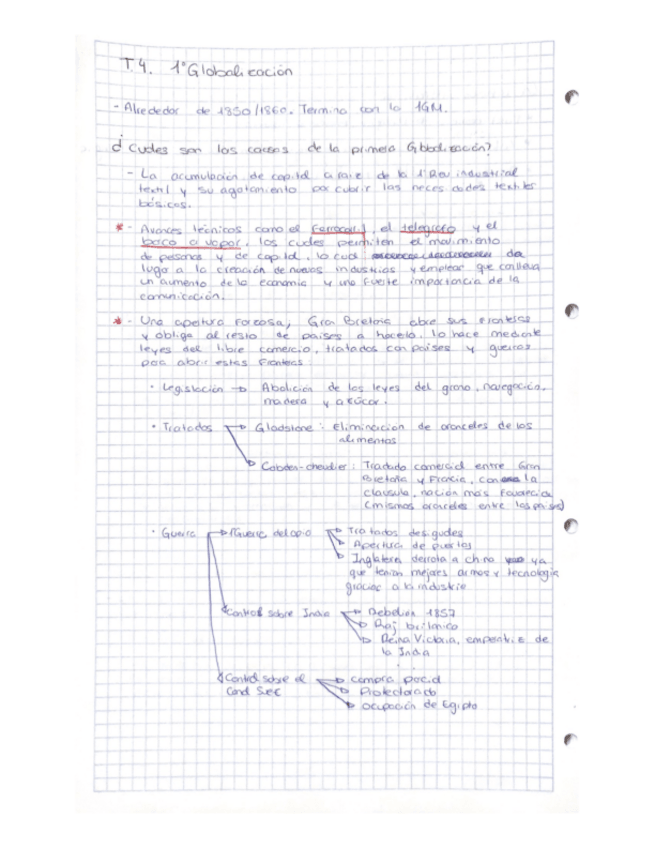 T.4. 1ª Globalización
- Alrededor de 1850/1860. Termina con la 1GM.
¿Cuáles son las causas de la primera Globalización?
- La acumulación de capital a raíz de la 1ª Rev. industrial
textil y su agotamiento por cubrir las necesidades textiles
básicas.
* - Avances técnicos como el ferrocarril, el telégrafo y el
barco a vapor, los cuales permiten el movimiento
de personas y de capital, lo cual da
lugar a la creación de nuevas industrias y emplear que conlleva
un aumento de la economía y una fuerte importancia de la
comunicación.
* - Una apertura forzosa, Gran Bretaña abre sus fronteras
y obliga al resto de países a hacerlo. Lo hace mediante
leyes del libre comercio, tratados con países y guerras
para abrir estas fronteras.
· Legislación → Abolición de las leyes del grano, navegación,
madera y azúcar.
· Tratados → Gladstone: Eliminación de aranceles de los
alimentos
→ Cobden-chevalier: Tradado comercial entre Gran
Bretaña y Francia, con la
clausula, nación más favorecida
(mismos aranceles entre los países)
· Guerra → 1ª Guerra del opio → Tratados desiguales
→ Apertura de puertos
→ Inglaterra derrota a china ya
que tenían mejores armas y tecnología
gracias a la industria
→ Control sobre India → Rebelión 1857
→ Raj británico
→ Reina Victoria, emperatriz de
la India
→ Control sobre el → compra parcial
Canal Suez → Protectorado
→ Ocupación de Egipto